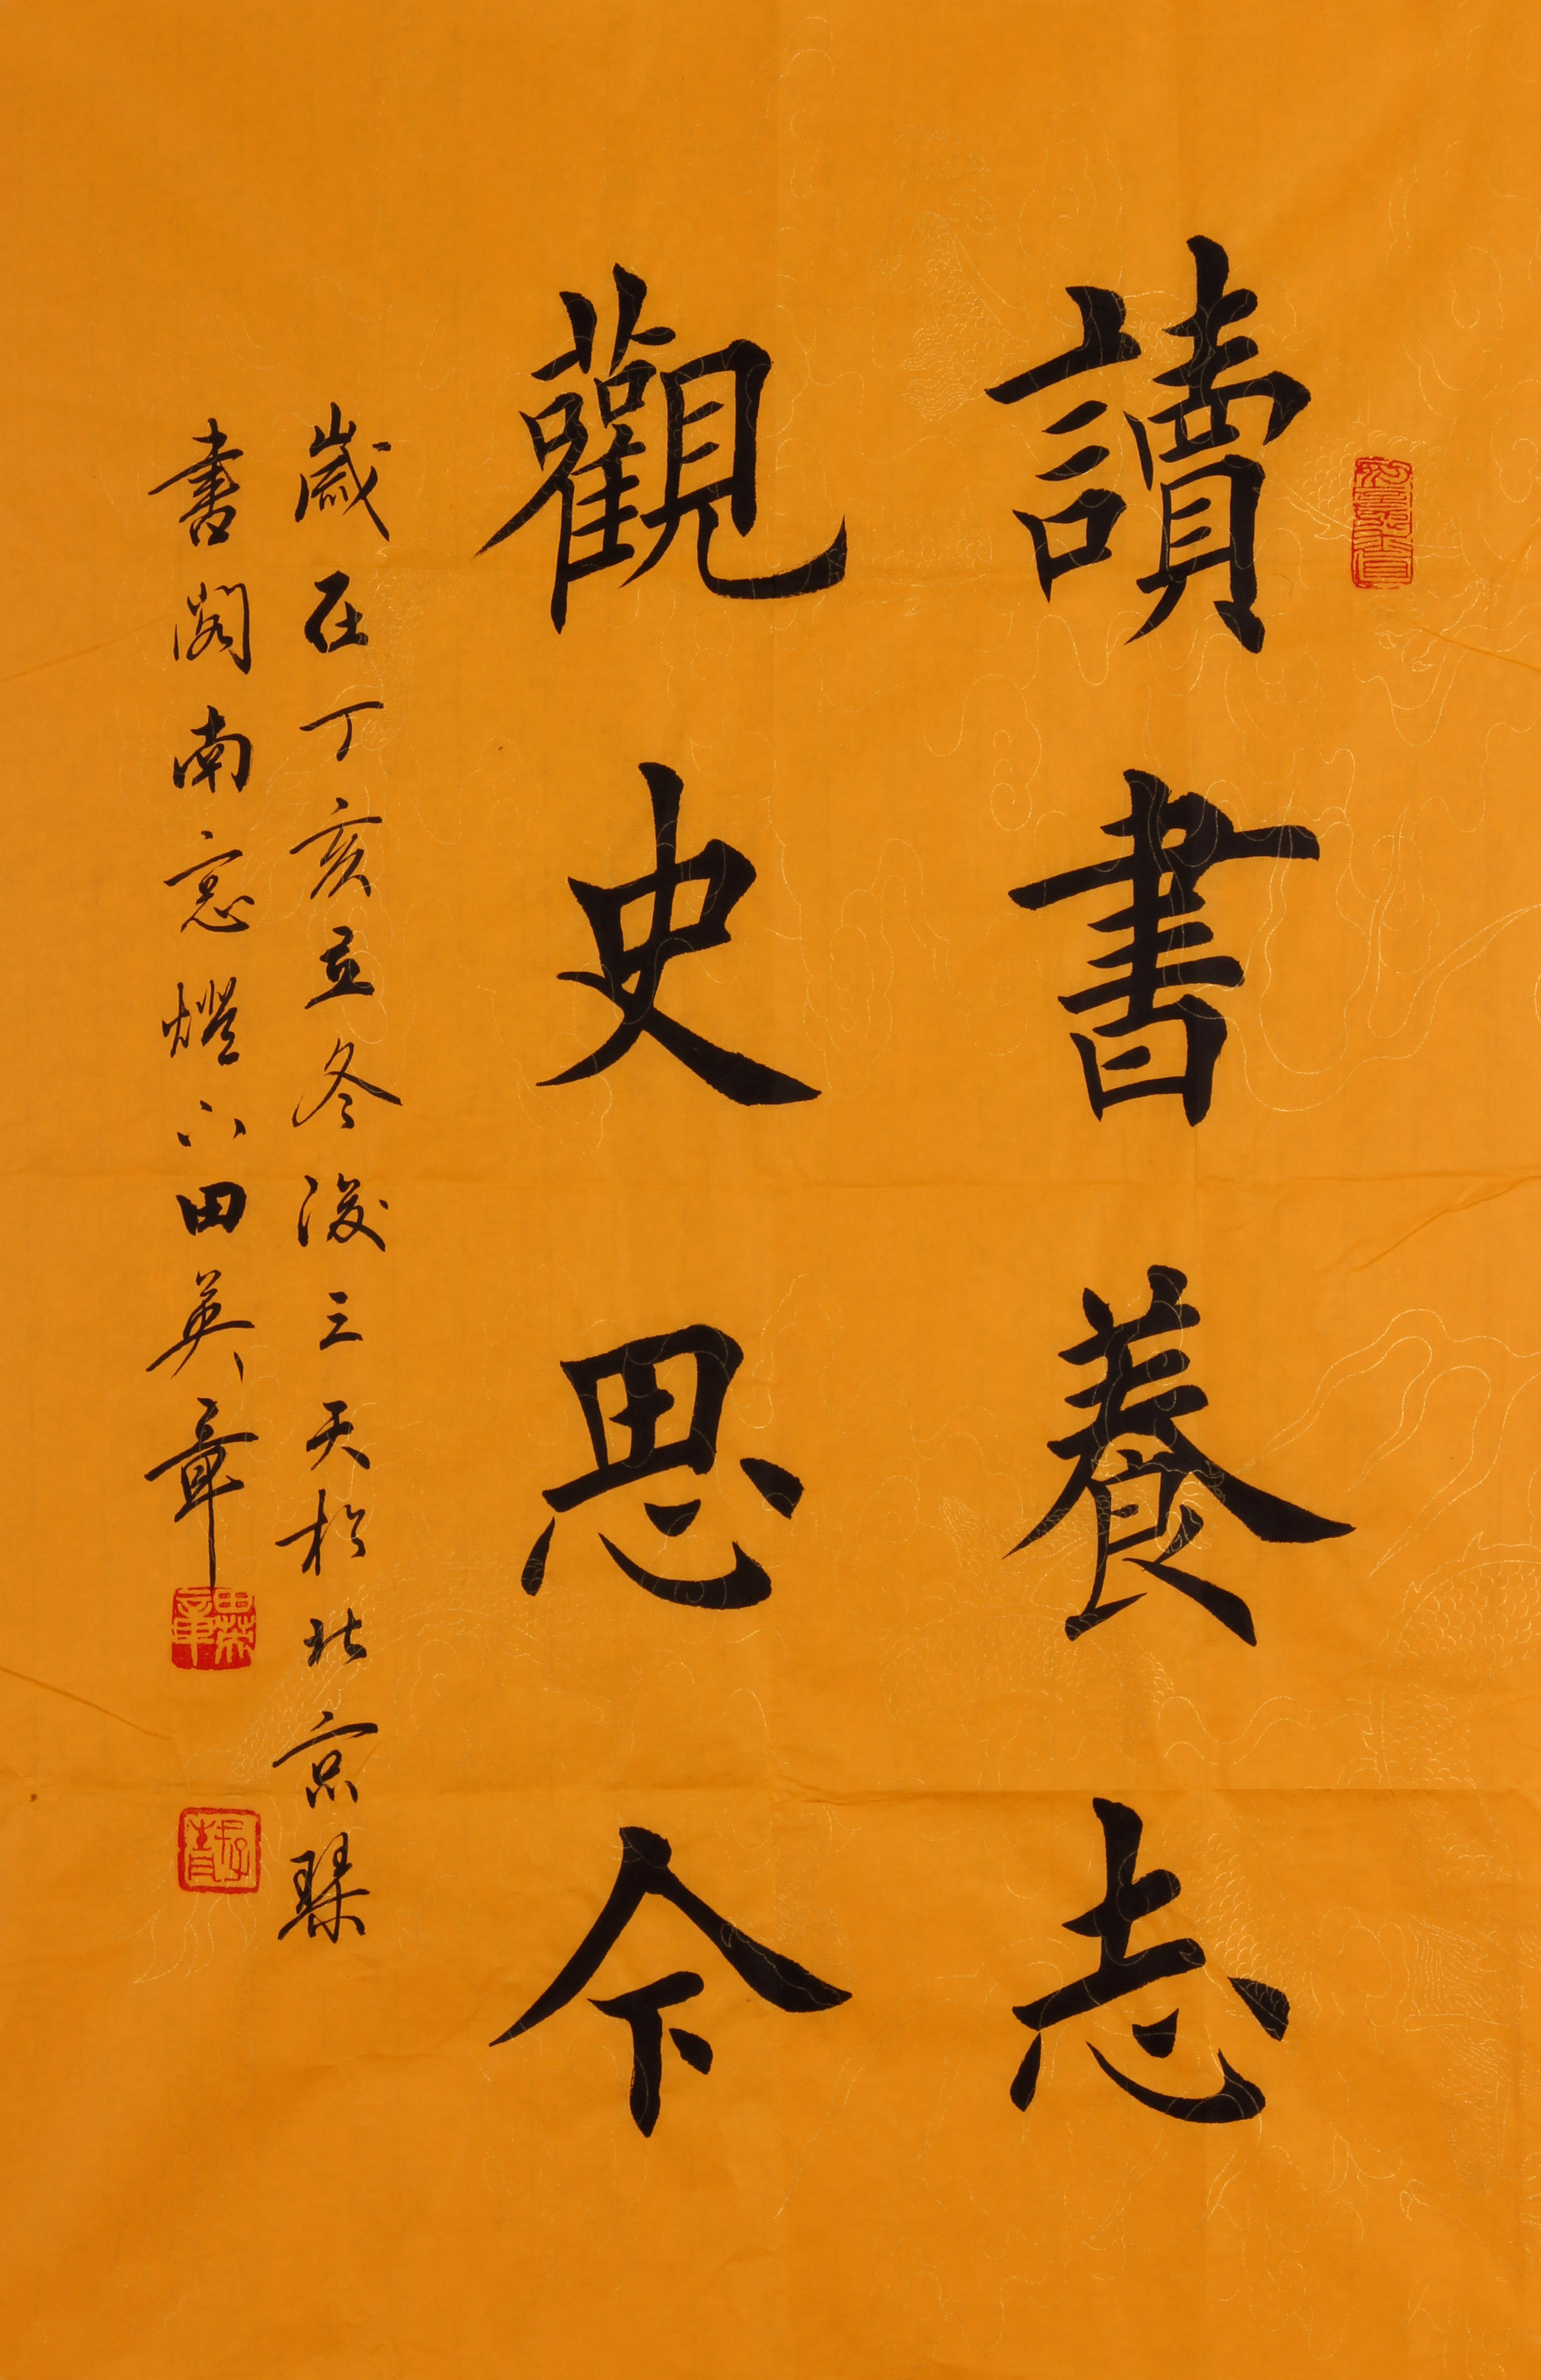 讀書養志
觀史思今
歲在丁亥立冬後三天於北京琹
書閣南窓燈下田英章
田英章